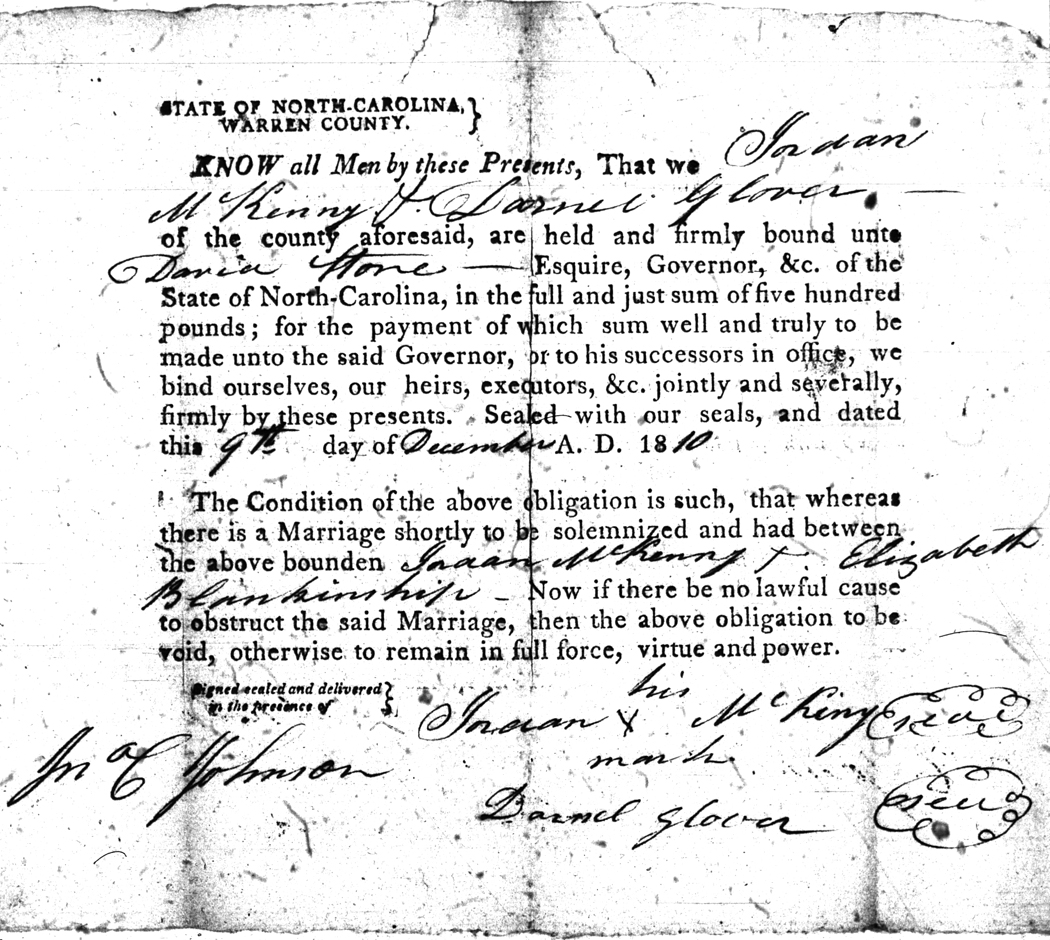 STATE OF NORTH-CAROLINA,
WARREN COUNTY.
KNOW all Men by these Presents, That we Jordan
McKenny & Darnel Glover —
of the county aforesaid, are held and firmly bound unto
David Stone — Esquire, Governor, &c. of the
State of North-Carolina, in the full and just sum of five hundred
pounds; for the payment of which sum well and truly to be
made unto the said Governor, or to his successors in office, we
bind ourselves, our heirs, executors, &c. jointly and severally,
firmly by these presents. Sealed with our seals, and dated
this 9th day of December A. D. 1810
The Condition of the above obligation is such, that whereas
there is a Marriage shortly to be solemnized and had between
the above bounden Jordan McKenny & Elizabeth
Blankinship - Now if there be no lawful cause
to obstruct the said Marriage, then the above obligation to be
void, otherwise to remain in full force, virtue and power.
Signed sealed and delivered
in the presence of
his
Jordan X McKiny seal
mark
Jno C Johnson
Darnel Glover seal